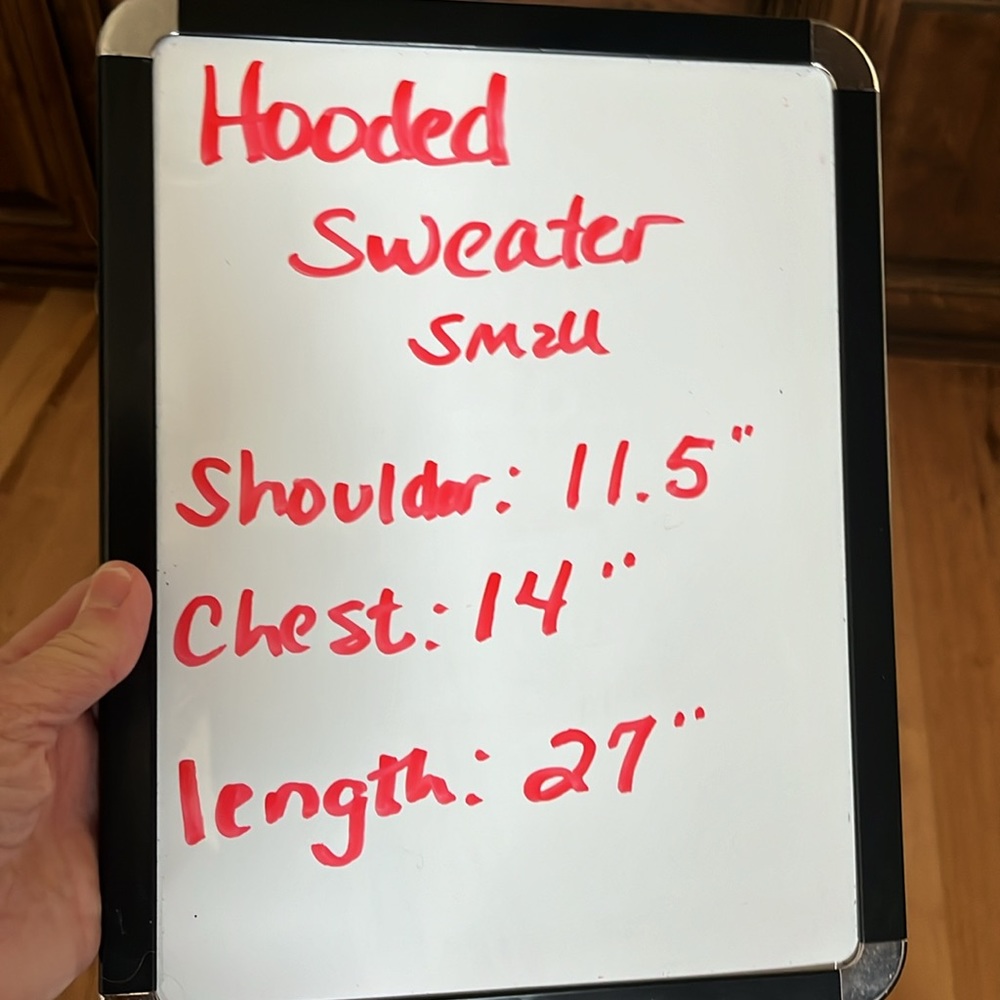 Hooded
Sweater
Small
Shoulder: 11.5"
Chest: 14"
length: 27"